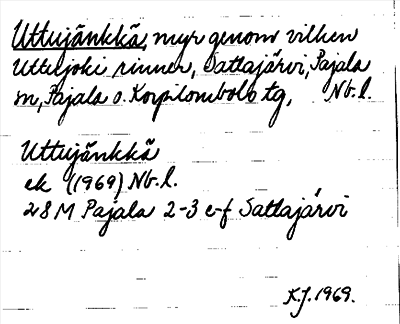 Uttujänkkä, myr genom vilken
Uttujoki rinner, Sattajärvi, Pajala
sn, Pajala o. Korpilombolo tg, Nb. l.
Uttujänkkä
ek (1969) Nb. l.
28 M Pajala 2-3 e-f Sattajärvi
K.J. 1969.